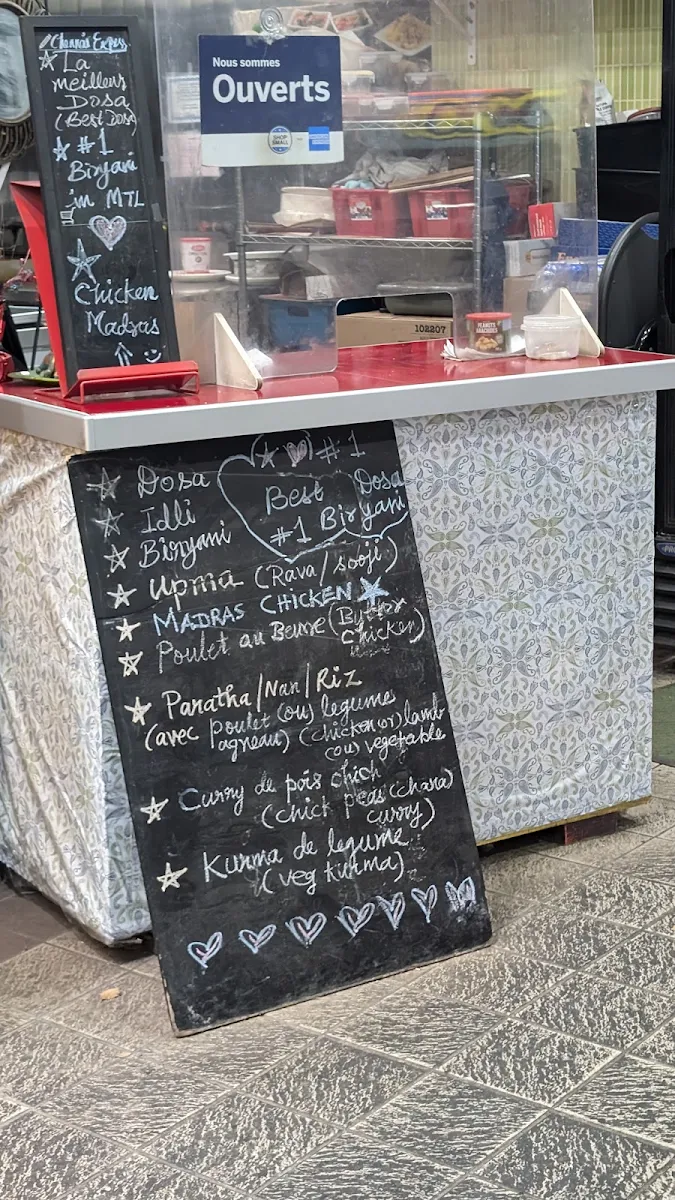 Channa's Express
La
meilleur
Dosa
(Best Dosa)
#1
Biryani
in MTL
Chicken
Madras
Nous sommes
Ouverts
SHOP
SMALL
102207
PEANUTS
ARACHIDES
#1
Best Dosa
#1 Biryani
Dosa
Idli
Biryani
Upma (Rava/sooji)
MADRAS CHICKEN
Poulet au Beurre (Butter
Chicken)
Paratha/Nan/Riz
(avec poulet (ou) legume
agneau) (chicken (or) lamb
(ou) vegetable
Curry de pois chich
(chick peas (chana)
curry)
Kurma de legume
(veg kurma)